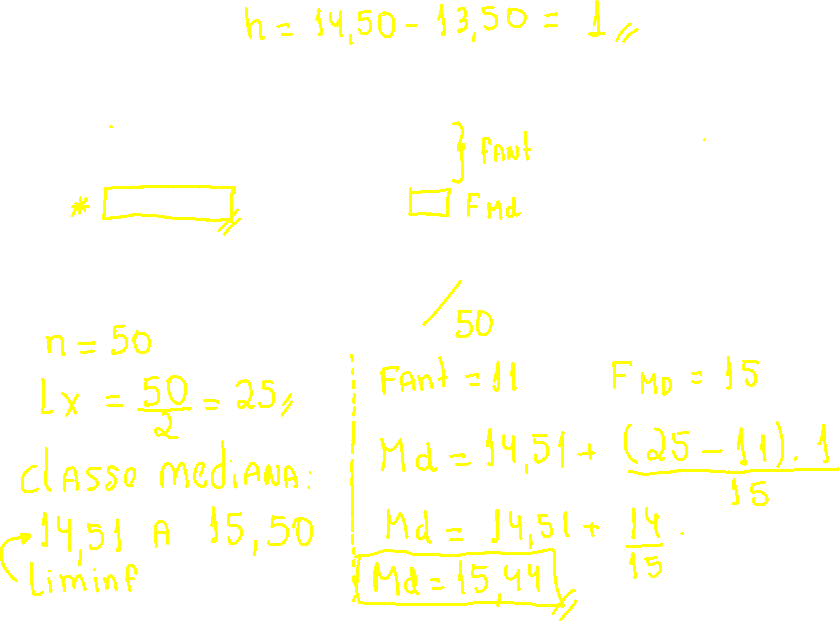 h = 14,50 - 13,50 = 1
} fAnt
* FMd
/50
n = 50
Lx = 50/2 = 25
classe mediana:
14,51 A 15,50
Liminf
FAnt = 11 FMD = 15
Md = 14,51 + (25 - 11) . 1 / 15
Md = 14,51 + 14/15 .
Md = 15,44